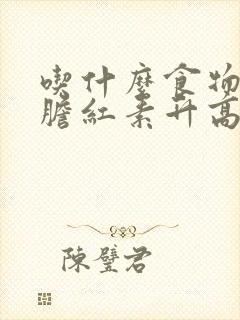 喫什麼食物
膽紅素升高
陳璧君